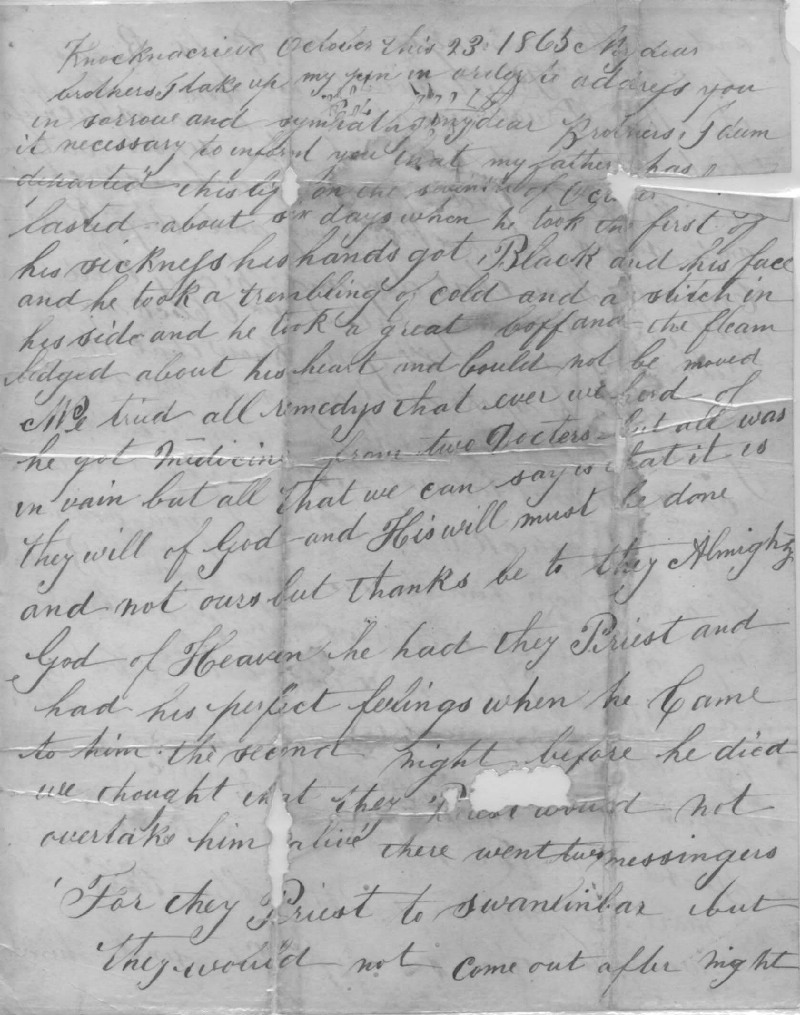 Knocknacrieve October this 23 1865 My dear
brothers I take up my pen in order to address you
in sorrow and sympathy my dear Brothers I deem
it necessary to inford you that my father has
departed this on the of
lasted about six days when he took the first of
his sickness his hands got Black and his face
and he took a trembling of cold and a stitch in
his side and he took a great boff and the fleam
lodged about his heart and could not be moved
We tried all remedys that ever we hord of
he got Medicine from two Docters but all was
in vain but all that we can say is that it is
they will of God and His will must be done
and not ours but thanks be to they Almighty
God of Heaven he had they Priest and
had his perfect feelings when he Came
to him the second night before he died
we thought that they Priest would not
overtake him alive there went two messingers
For they Priest to swanlinbar but
they would not come out after night